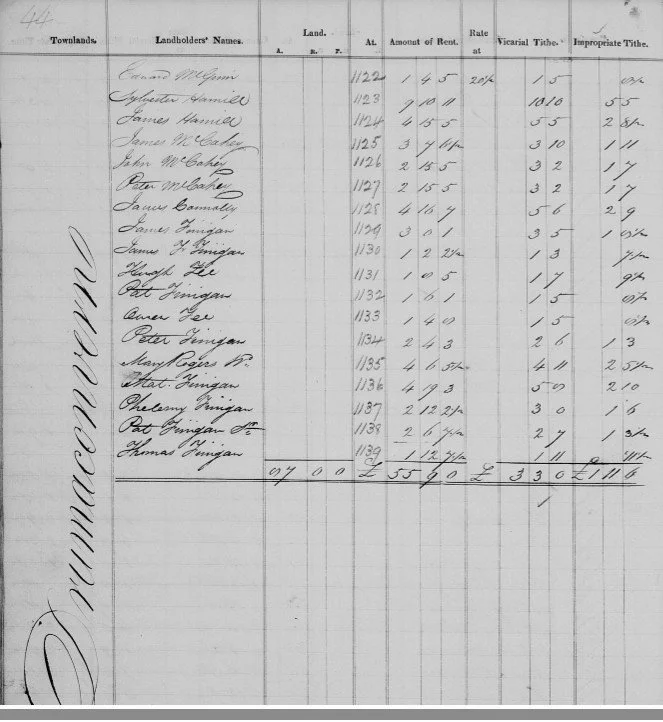 44
Townlands. Landholders' Names. Land. A. R. P. At. Amount of Rent. Rate at Vicarial Tithe. Impropriate Tithe.
Drumaconvern
Edward McGinn 1122 1 4 5 1 5
Sylvester Hamill 1123 9 10 11 10 10 5 5
James Hamill 1124 4 15 5 5 5 2
James McCahey 1125 3 7 3 10 1 11
John McCahey 1126 2 15 5 3 2 1 7
Peter McCahey 1127 2 15 5 3 2 1 7
James Connolly 1128 4 16 7 5 6 2 9
James Finigan 1129 3 0 1 3 5 1
James F Finigan 1130 1 2 2½ 1 3
Hugh Fee 1131 1 0 5 1 7
Pat Finigan 1132 1 6 1 1 5
Owen Fee 1133 1 4 0 1 5
Peter Finigan 1134 2 4 3 2 6 1 3
Mary Rogers Wd. 1135 4 6 5½ 4 11 2 5½
Mat. Finigan 1136 4 19 3 5 0 2 10
Phelemy Finigan 1137 2 12 2½ 3 0 1 6
Pat Finigan Sr. 1138 2 6 7½ 2 7 1 3½
Thomas Finigan 1139 1 12 7½ 1 11 11½
97 0 0 £ 55 9 0 £ 3 3 0 £ 1 11 6
1